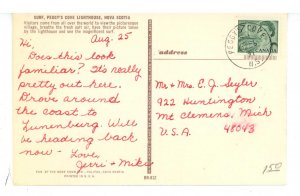 SURF, PEGGY'S COVE LIGHTHOUSE, NOVA SCOTIA
Visitors come from all over the world to view the picturesque
village, breathe the fresh salt air, have their picture taken
by the lighthouse and see the magnificent surf.
Aug. 25
Hi,
Does this look
familiar? It's really
pretty out here.
Drove around
the coast to
Lunenburg. Will
be heading back
now - Love,
Jerri & Mike
address
Mr & Mrs. E. J. Seyler
922 Huntington
Mt Clemens, Mich
U.S.A. 48043
150